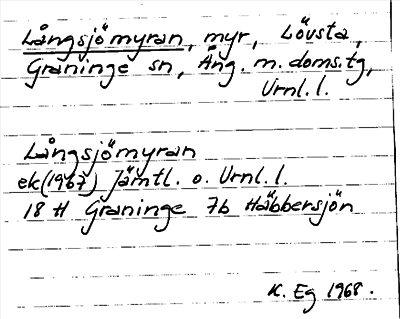 Långsjömyran, myr, Lövsta,
Graninge sn, Ång. m. doms.tg,
Vrnl.l.
Långsjömyran
ek(1967) Jämtl. o. Vrnl.l.
18 H Graninge 7b Häbbersjön
K. Eg 1968.